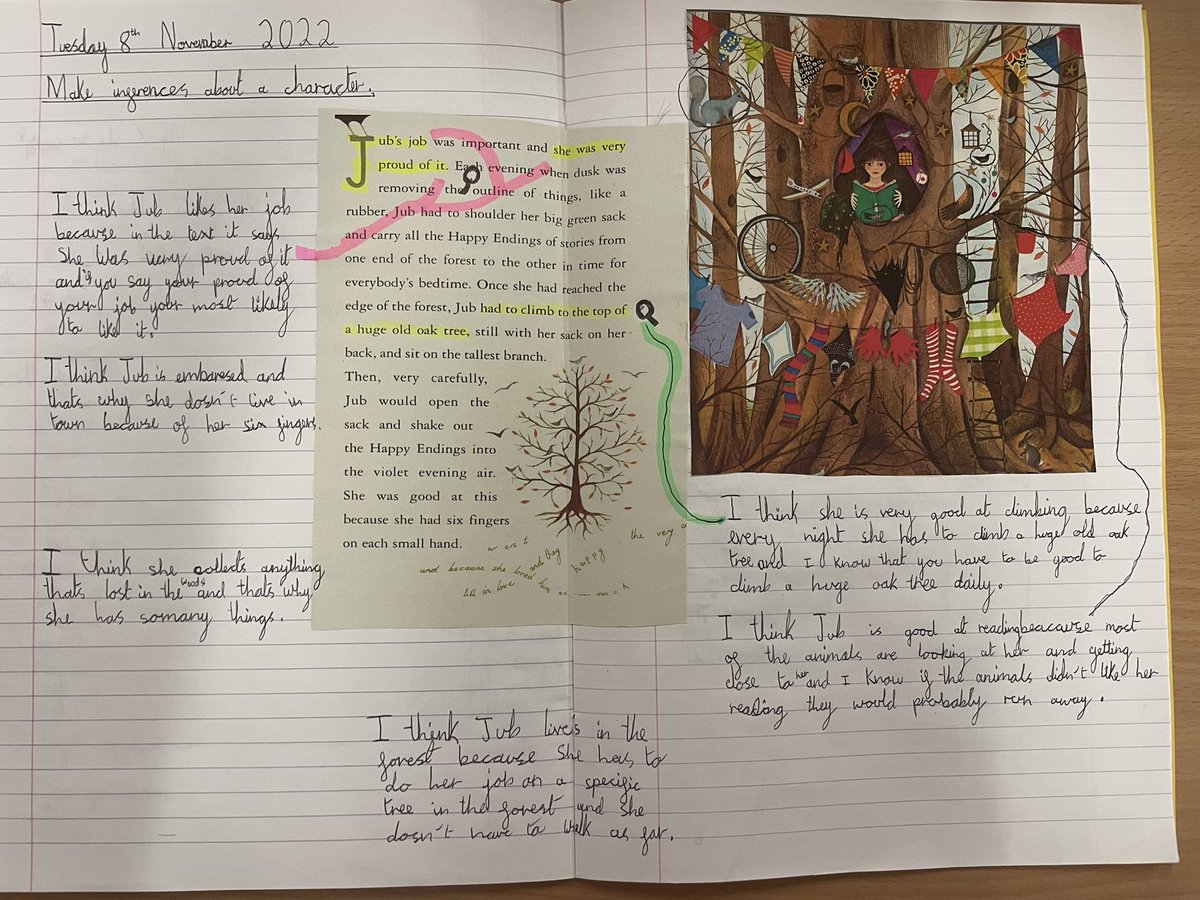 Tuesday 8th November 2022
Make inferences about a character.
I think Jub likes her job
because in the text it says
She was very proud of it
and if you say your proud of
your job your most likely
to like it.
I think Jub is embaresed and
thats why she dosn't live in
town because of her six fingers.
I think she collects anything
thats lost in the woods and thats why
she has somany things.
Jub's job was important and she was very
proud of it. Each evening when dusk was
removing the outline of things, like a
rubber, Jub had to shoulder her big green sack
and carry all the Happy Endings of stories from
one end of the forest to the other in time for
everybody's bedtime. Once she had reached the
edge of the forest, Jub had to climb to the top of
a huge old oak tree, still with her sack on her
back, and sit on the tallest branch.
Then, very carefully,
Jub would open the
sack and shake out
the Happy Endings into
the violet evening air.
She was good at this
because she had six fingers
on each small hand.
and because she loved him
and they
happy
the very
fell in love
I think Jub live's in the
forest because She has to
do her job on a specific
tree in the forest and she
dosn't have to walk as far.
I think she is very good at climbing because
every night she has to climb a huge old oak
tree and I know that you have to be good to
climb a huge oak tree daily.
I think Jub is good at readingbeacause most
of the animals are looking at her and getting
close to her and I know if the animals didn't like her
reading they would probably run away.